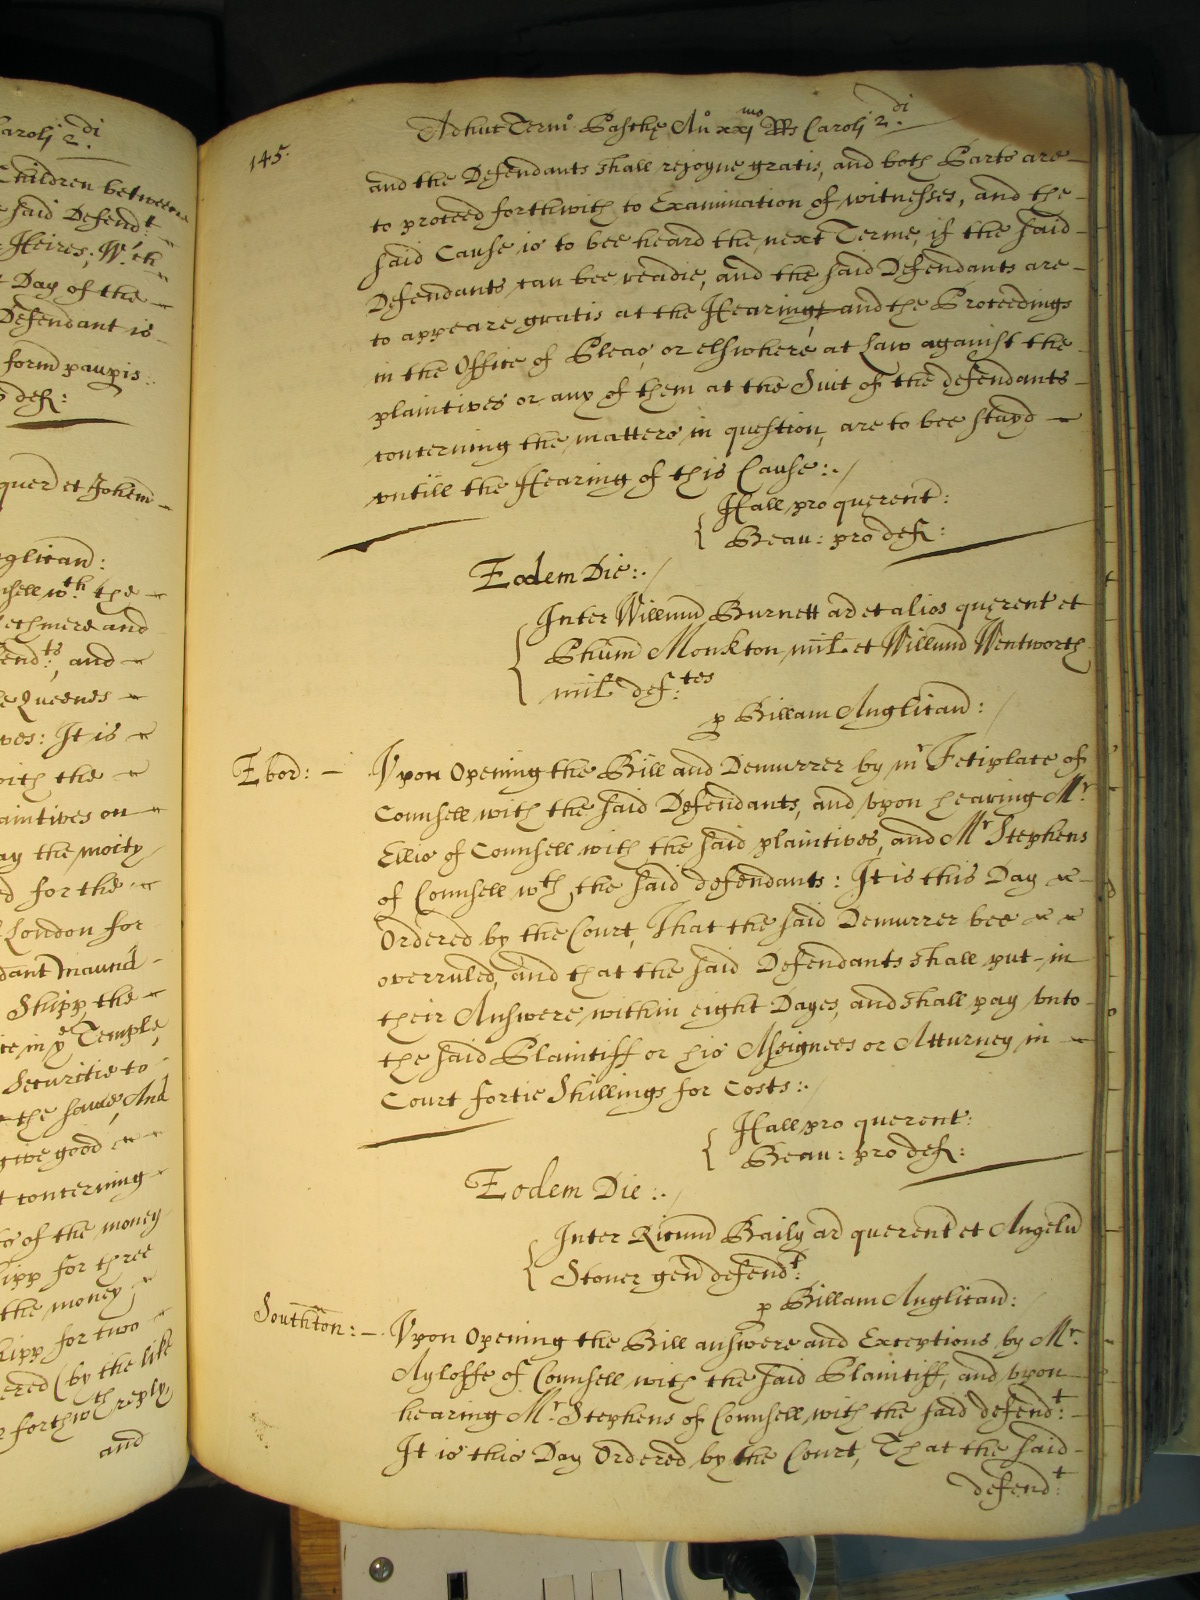 Caroli 2.di
Children betweene
said Defend.t
Heires; W.ch
Day of the
Defendant is
form paup̱is:
def̱:
quer et Johem
Anglican:
nsell w.th the
echmere and
fend:ts, and
Queenes
ves: It is
with the
aintives on
ay the moity
ed for the
London for
dant Maund
Skipp, the
in ye Temple,
Securitie to
the same, And
give good
concerning
of the money
ipp for three
the money
kipp for two
ered (by the like
forthwth reply
and
145.
Adhuc Termo Pasche Ao xxjmo RRs Caroli 2.di
and the Defendants shall rejoyne gratis, and both Parts are
to proceed forthwith to Examination of witnesses, and the
said Cause is to bee heard the next Terme, if the said
Defendants can bee readie, and the said Defendants are
to appeare gratis at the Hearing, and the Proceedings
in the Office of Pleas, or elswhere at Law against the
plaintives or any of them at the Suit of the defendants
concerning the matters in question, are to bee stayd
vntill the Hearing of this Cause:.
Hall pro querent:
Beau: pro def̱:
Eodem Die:.
Inter Willmum Burnett ar et alios querent et
Phūm Monkton mil et Willmum Wentworth
mil def:tes
p̱ Billam Anglican:
Ebor: - Vpon Opening the Bill and Demurrer by mr Fetiplace of
Counsell with the said Defendants, and vpon hearing Mr.
Ellis of Counsell with the said plaintives, and Mr Stephens
of Counsell wth the said defendants: It is this Day
Ordered by the Court, That the said Demurrer bee
overruled, and that the said Defendants shall put in
their Answere within eight Dayes, and shall pay vnto
the said Plaintiff or his Assignees or Atturney in
Court fortie Shillings for Costs:.
Hall pro querent:
Beau: pro def̱:
Eodem Die:.
Inter Ricum Baily ar querent et Angelū
Stoner gen defend:t
p̱ Billam Anglican:
Southton: - Vpon Opening the Bill answere and Exceptions by Mr.
Ayloffe of Counsell with the said Plaintiff, and vpon
hearing Mr Stephens of Counsell with the said defend:t
It is this Day Ordered by the Court, That the said
defend:t